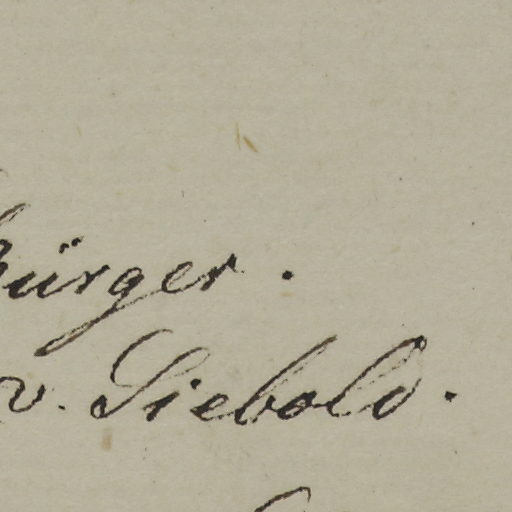 Bürger.
v. Siebold.